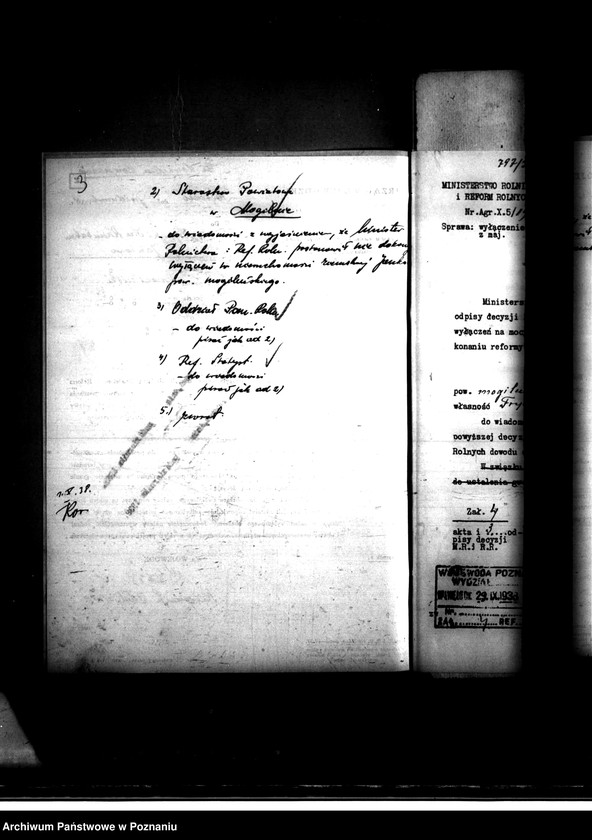 3
2) Starostwo Powiatowe
w Mogilnie
- do wiadomości z wyjaśnieniem, że Minister
Rolnictwa i Ref. Roln. postanowił nie
w nieruchomości ziemskiej
pow. mogileńskiego.
3) Oddział Pom. Roln.
- do wiadomości
pisać jak ad 2)
4) Ref. Statyst.
- do wiadomości
pisać jak ad 2)
5.) zwrot
38.
MINISTERSTWO ROLN
i REFORM ROLNYC
Nr.Agr.X.5/
Sprawa: wyłączenie
z maj.
Ministers
odpisy decyzji
wyłączeń na moc
konaniu reformy
pow. mogile
własność
do wiadom
powyższej decyz
Rolnych dowodu
W związku
do ustalenia
Zał. 4
akta i 3...od-
pisy decyzji
M.R.i R.R.
WOJEWODA POZN
WYDZIAŁ
29.IX.193
Nr.
ZAŁ. 4 REF.
Archiwum Państwowe w Poznaniu